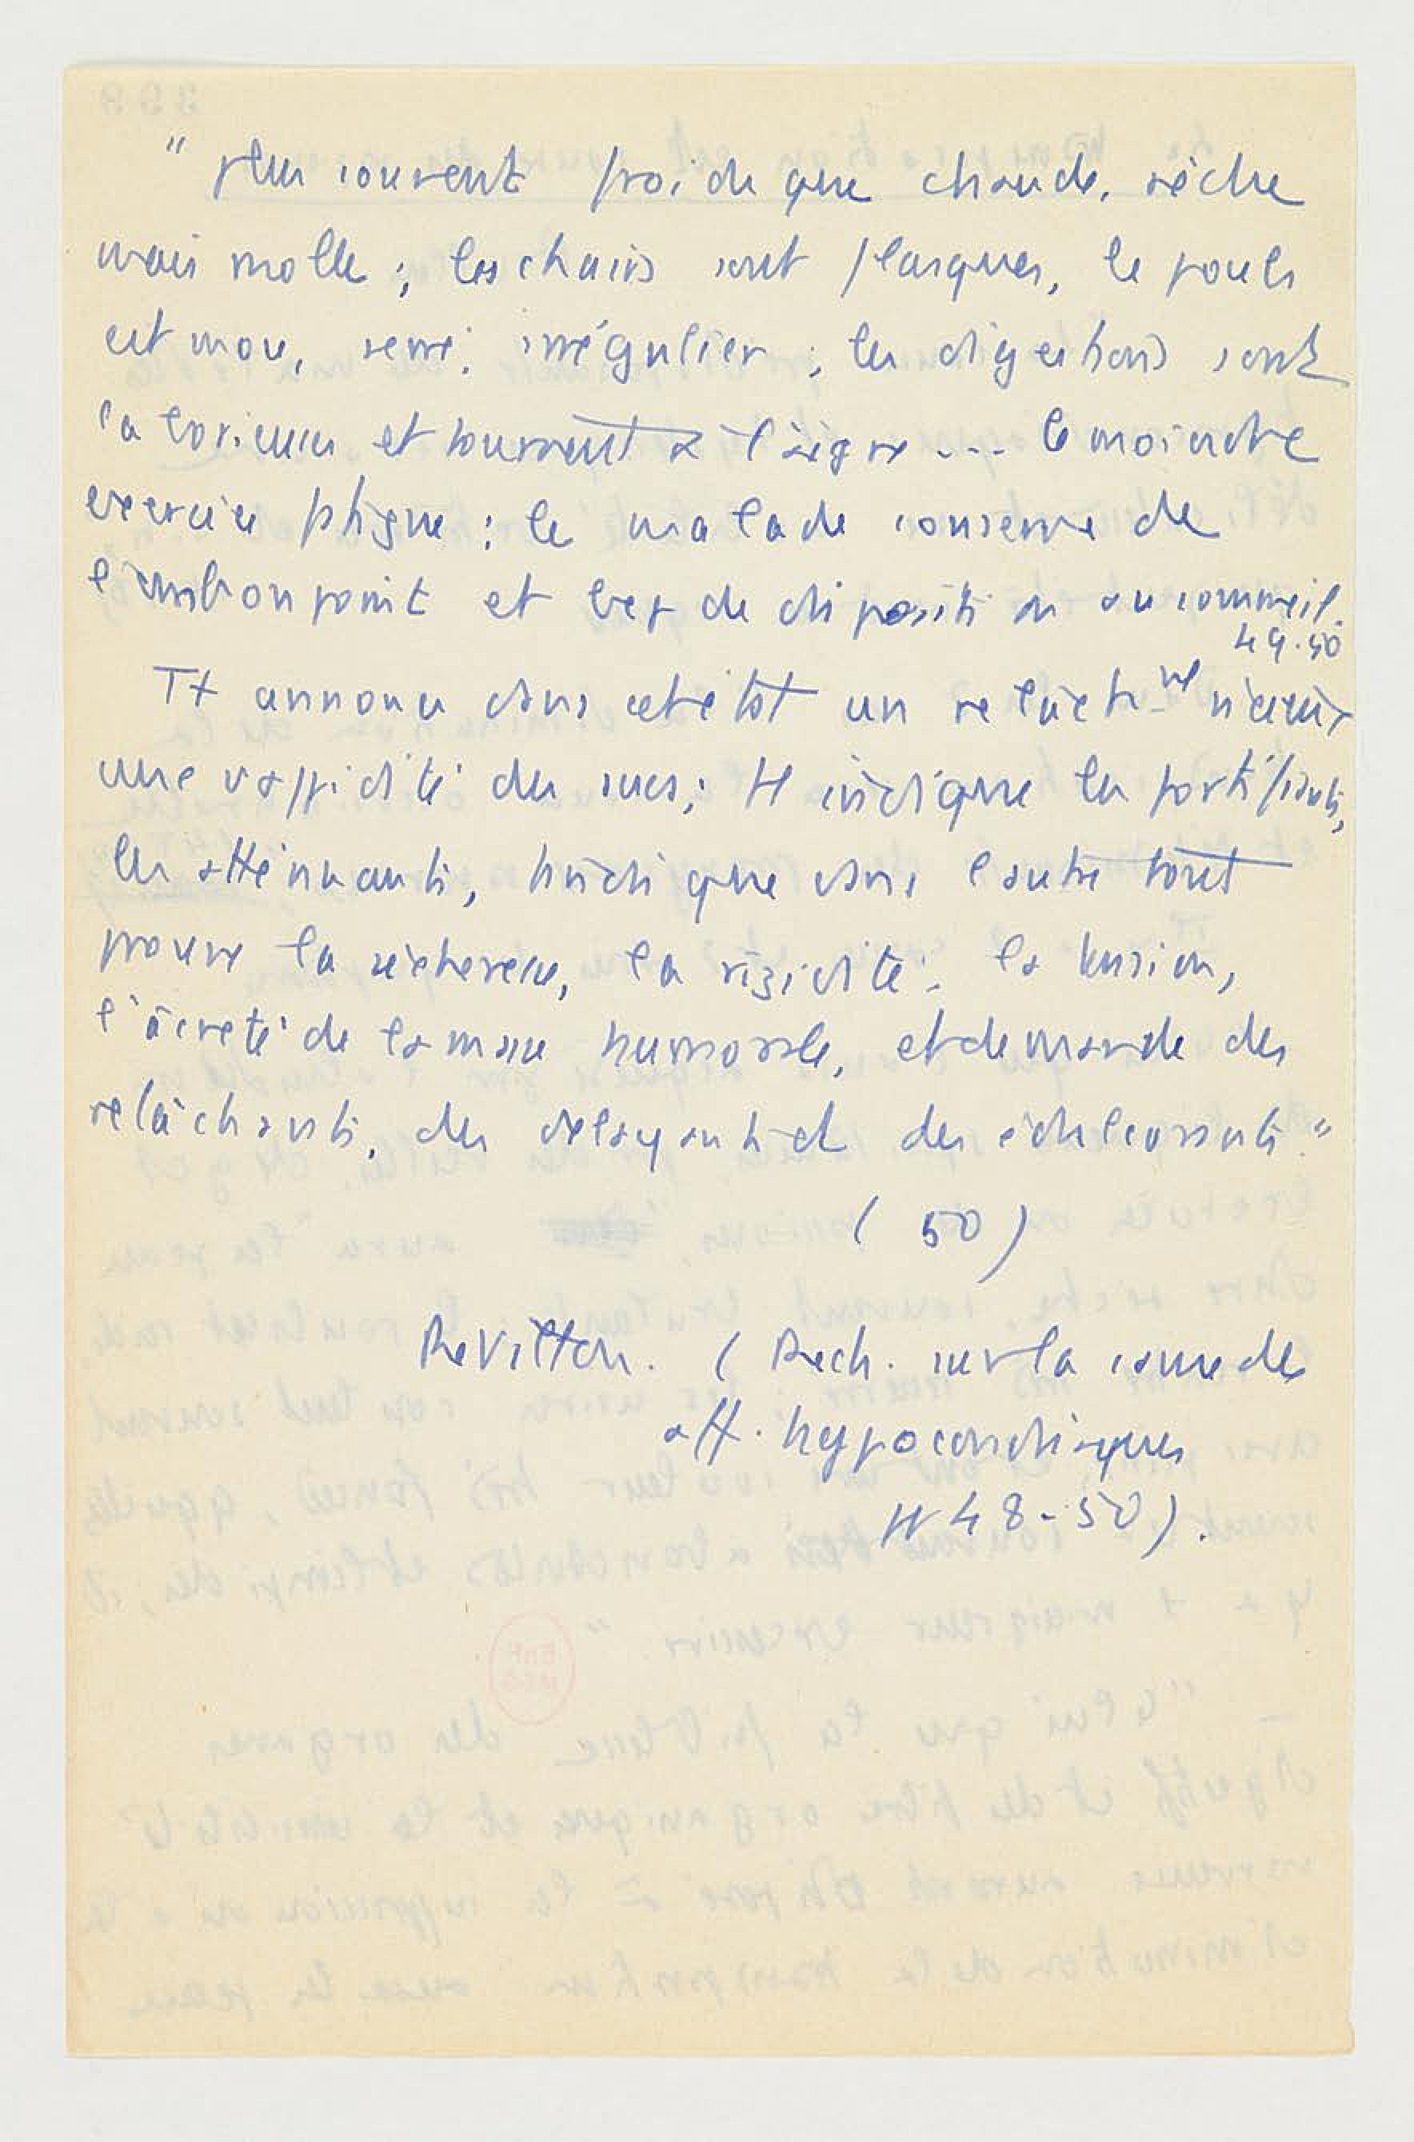 " plus souvent froide que chaude, sèche
mais molle ; les chairs sont flasques, le pouls
est mou, serré, irrégulier ; les digestions sont
laborieuses et tournent à l'aigre ... le moindre
exercice fatigue ; le malade conserve de
l'embonpoint et bcp de disposition au sommeil.
49.50
Tt annonce dans cet état un relâchᵗ
une vappidité des sucs ; tt indique les fortifiants,
les atténuants, tandis que dans l'autre tout
prouve la sécheresse, la rigidité, la tension,
l'âcreté de la masse humorale, et demande des
relâchants, des délayants et des édulcorants "
( 50 )
Revillon. ( Rech. sur la cause des
aff. hypocondriaques
pp 48-50 ).